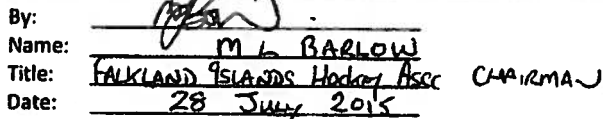 By:
Name: M L BARLOW
Title: FALKLAND ISLANDS Hockey Assc CHAIRMAN
Date: 28 July 2015